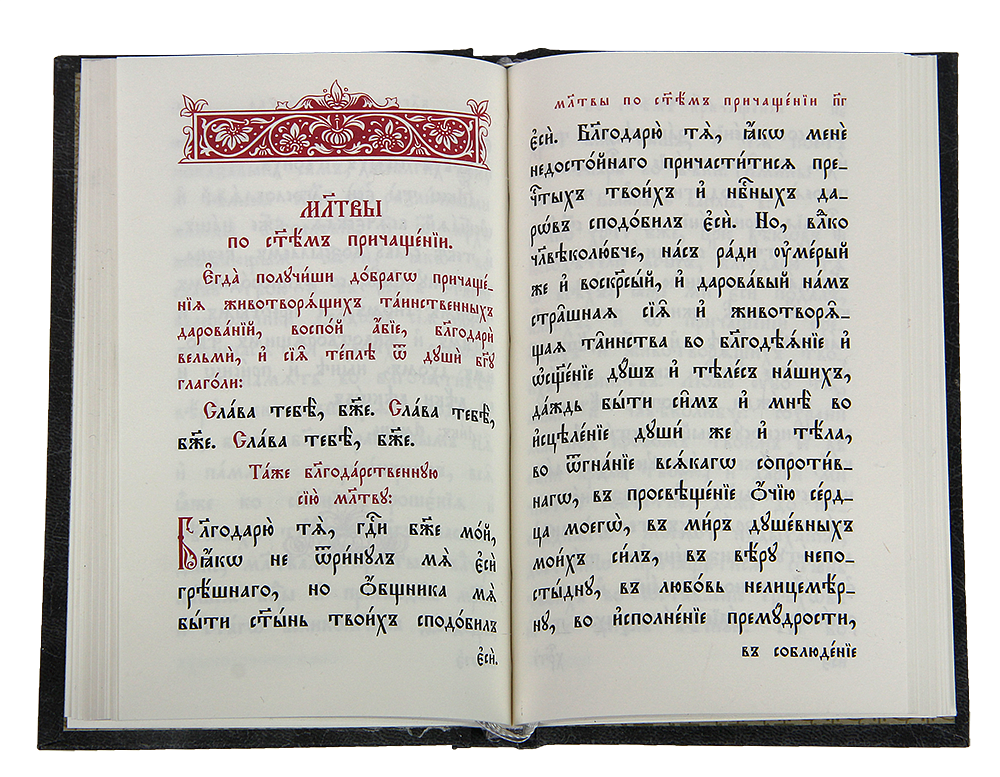 МЛ҃твы
по ст҃ѣ́мъ причаще́нїи.
Є҆гда̀ получи́ши до́брагѡ причаще́-
нїѧ животворѧ́щихъ та́инственныхъ
дарова́нїй, воспо́й а҆́бїе, бл҃годарѝ
вельмѝ, и҆ сїѧ̑ те́плѣ ѿ дꙋшѝ бг҃ꙋ
глаго́ли:
Сла́ва тебѣ̀, бж҃е. Сла́ва тебѣ̀,
бж҃е. Сла́ва тебѣ̀, бж҃е.
Та́же бл҃года́рственнꙋю
сїю̀ мл҃твꙋ:
Бл҃годарю́ тѧ̀, гдⷭ҇и бж҃е мо́й,
ꙗ҆́кѡ не ѿри́нꙋлъ мѧ̀ є҆сѝ
грѣ́шнаго, но ѻ҆́бщника мѧ̀
бы́ти ст҃ы́нь твои́хъ сподо́билъ
є҆сѝ.
мл҃твы по ст҃ѣ́мъ причаще́нїи п҃г
є҆сѝ. Бл҃годарю́ тѧ̀, ꙗ҆́кѡ менѐ
недосто́йнаго причасти́тисѧ пре-
чⷭ҇тыхъ твои́хъ и҆ нбⷭ҇ныхъ да-
рѡ́въ сподо́билъ є҆сѝ. Но, влⷣко
чл҃вѣколю́бче, на́съ ра́ди ᲂу҆ме́рый
же и҆ воскрⷭ҇сый, и҆ дарова́вый на́мъ
стра̑шнаѧ сїѧ̑ и҆ животворѧ̑-
щаѧ та̑инства во бл҃годѣѧ́нїе и҆
ѡ҆сщ҃е́нїе дꙋ́шъ и҆ тѣле́съ на́шихъ,
да́ждь бы́ти си̑мъ и҆ мнѣ̀ во
и҆сцѣле́нїе дꙋши́ же и҆ тѣ́ла,
во ѿгна́нїе всѧ́кагѡ сопроти́в-
нагѡ, въ просвѣще́нїе ѻ҆́чїю се́рд-
ца моегѡ̀, въ ми́ръ дꙋше́вныхъ
мои́хъ си́лъ, въ вѣ́рꙋ непо-
сты́днꙋ, въ любо́вь нелицемѣ́р-
нꙋ, во и҆сполне́нїе премꙋ́дрости,
въ соблюде́нїе